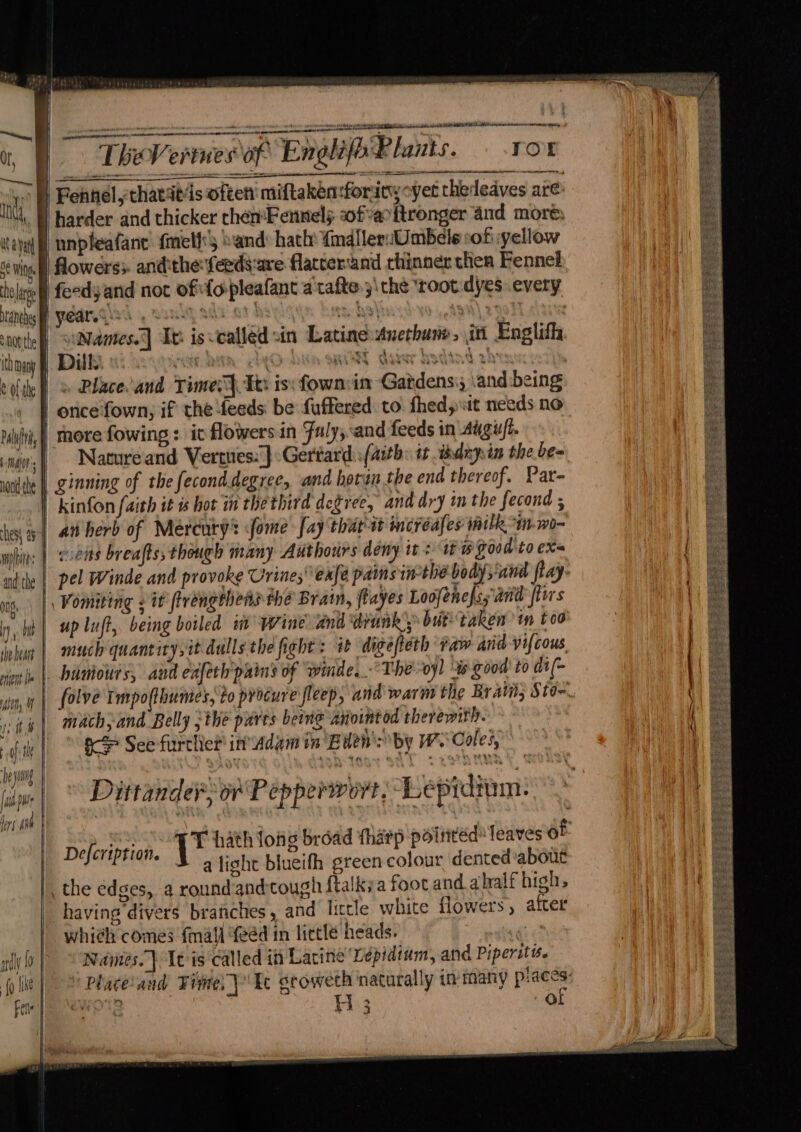 The Vertues of Engliſh Plants. 101
Fennel, that it is often miſtaken for it; yet the leaves are
harder and thicker then Fennels of a ſtronger and more
unpleaſant ſmell; and hath ſmaller Umbels of yellow
flowers, and the ſeeds are flatter and thinner then Fennel
ſeed, and not of ſo pleaſant a taſte; the root dyes every
year.
Names.] It is called in Latine Anethum, in Engliſh
Dill.
Place and Time.] It is ſown in Gardens; and being
once ſown, if the ſeeds be ſuffered to ſhed, it needs no
more ſowing: it flowers in July, and ſeeds in Auguſt.
Nature and Vertues.] Gerrard ſaith it is dry in the be-
ginning of the ſecond degree, and hot in the end thereof. Par-
kinſon ſaith it is hot in the third degree, and dry in the ſecond;
an herb of Mercury: ſome ſay that it increaſes milk in wo-
mens breaſts, though many Authours deny it: it is good to ex-
pel Winde and provoke Urine, eaſe pains in the body, and ſtay
Vomiting; it ſtrengthens the Brain, ſtayes Looſeneſs, and ſtirs
up luſt, being boiled in Wine and drunk; but taken in too
much quantity, it dulls the ſight: it digeſteth raw and viſcous
humours, and eaſeth pains of winde. The oyl is good to diſ-
ſolve Impoſthumes, to procure ſleep, and warm the Brain, Sto-
mach, and Belly; the parts being anointed therewith.
☞ See further in Adam in Eden: by W. Coles,
Dittander, or Pepperwort, Lepidium.
Deſcription. IT hath long broad ſharp pointed leaves of
a light blueiſh green colour dented about
the edges, a round and tough ſtalk, a foot and a half high,
having divers branches, and little white flowers, after
which comes ſmall ſeed in little heads.
Names.] It is called in Latine Lepidium, and Piperitis.
Place and Time.] It groweth naturally in many places
H 3 of